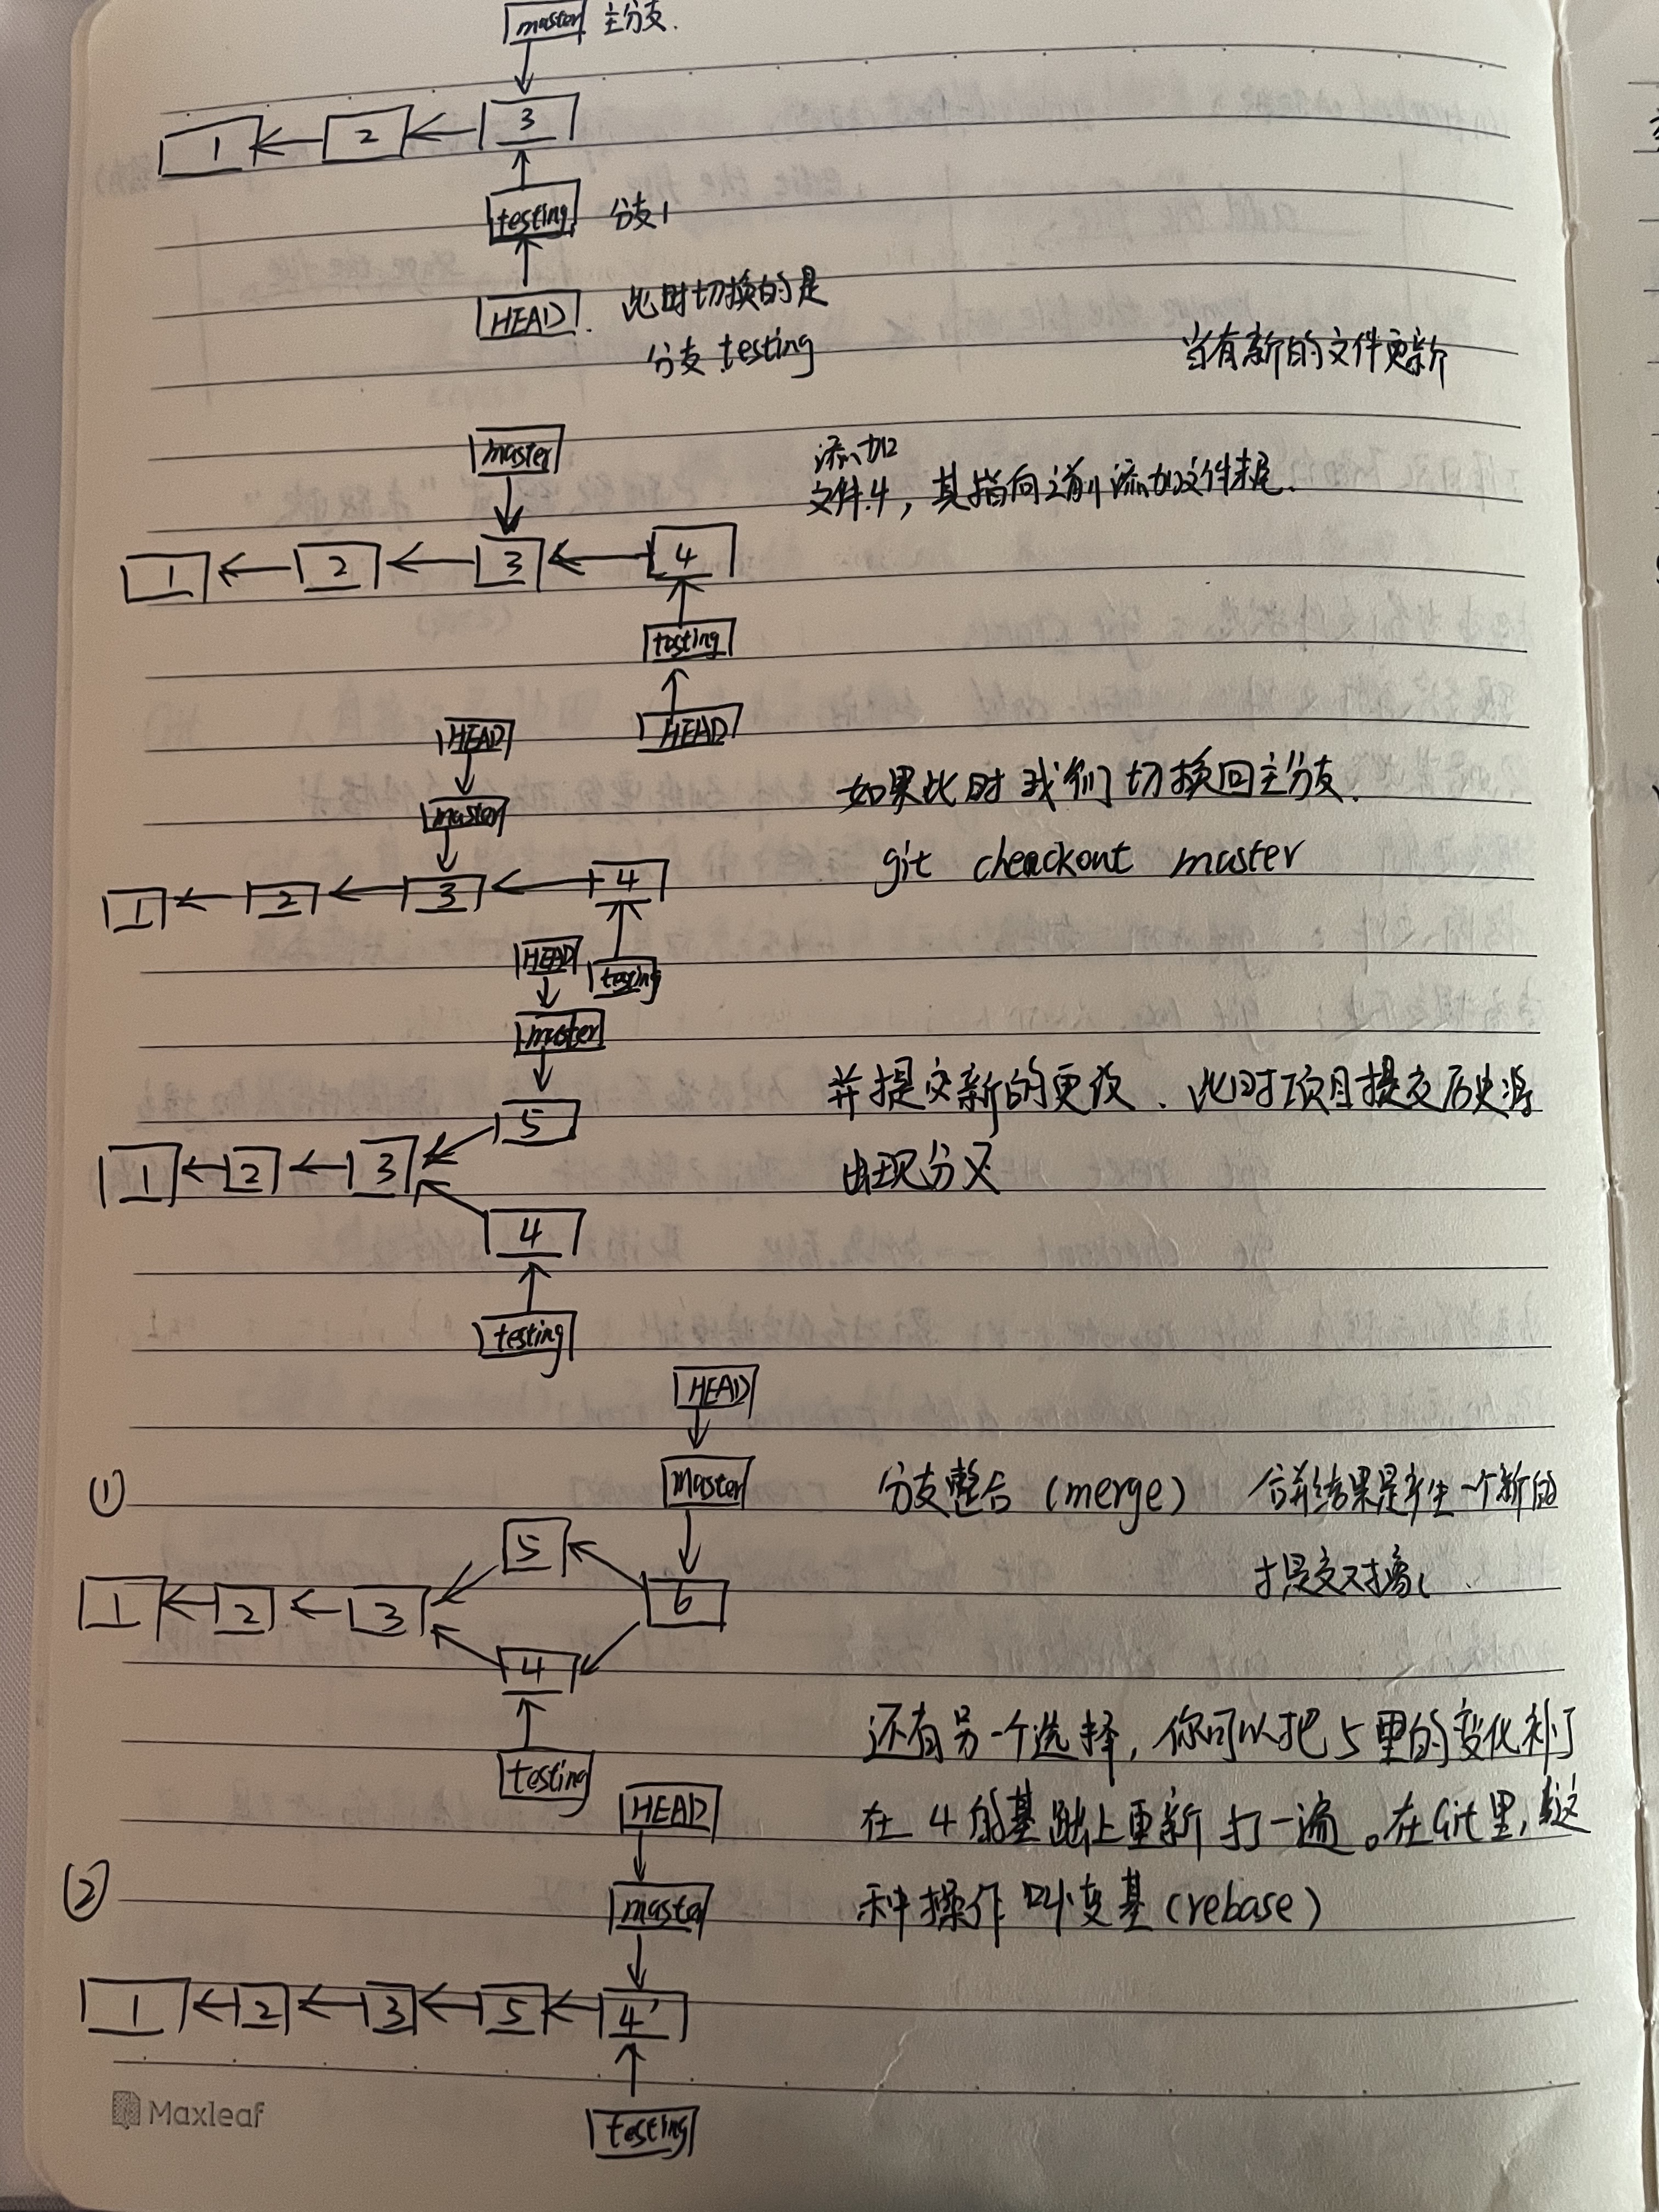 master 主分支.
3
1 2
testing 分支1
HEAD. 此时切换的是
分支 testing
当有新的文件更新
master
添加
文件4，其指向之前添加文件末尾.
1 2 3 4
testing
HEAD
HEAD
如果此时我们切换回主分支.
master
git cheackout master
1 2 3 4
HEAD testing
master
并提交新的更改、此时项目提交历史
5
1 2 3
出现分叉
4
testing
HEAD
① master 分支整合（merge） 合并结果是产生一个新的
5
提交对象
1 2 3 6
4
还有另一个选择，你可以把5里的变化补丁
testing
HEAD 在4的基础上重新打一遍。在Git里，这
② master 种操作叫变基（rebase）
1 2 3 5 4'
Maxleaf
testing